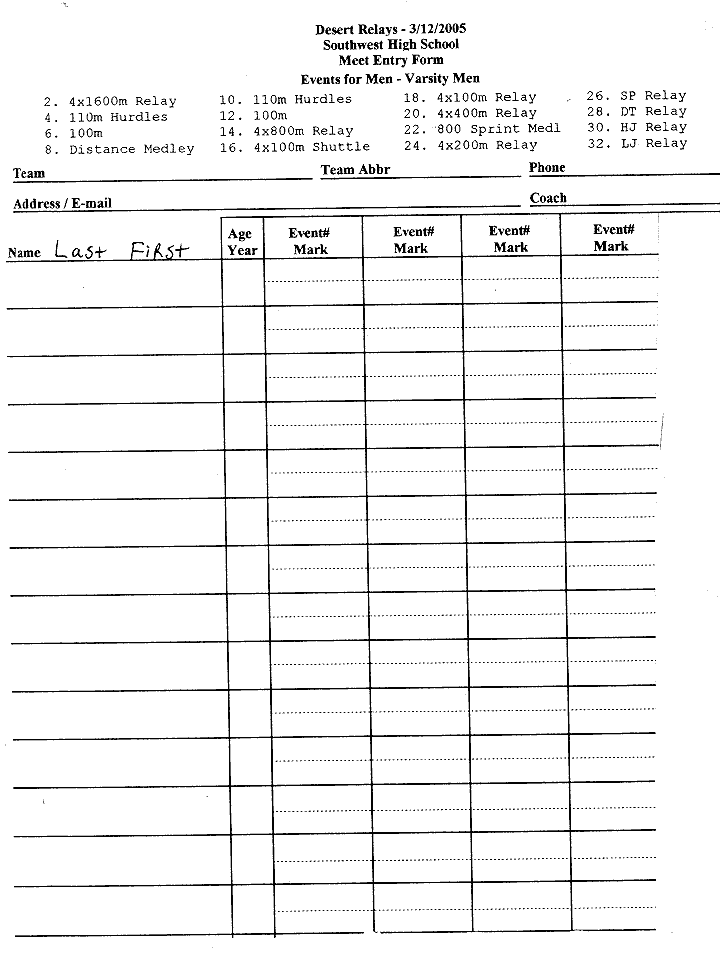 Desert Relays - 3/12/2005
Southwest High School
Meet Entry Form
Events for Men - Varsity Men
2. 4x1600m Relay 10. 110m Hurdles 18. 4x100m Relay 26. SP Relay
4. 110m Hurdles 12. 100m 20. 4x400m Relay 28. DT Relay
6. 100m 14. 4x800m Relay 22. 800 Sprint Medl 30. HJ Relay
8. Distance Medley 16. 4x100m Shuttle 24. 4x200m Relay 32. LJ Relay
Team Team Abbr Phone
Address / E-mail Coach
Age Event# Event# Event# Event#
Name Last First Year Mark Mark Mark Mark